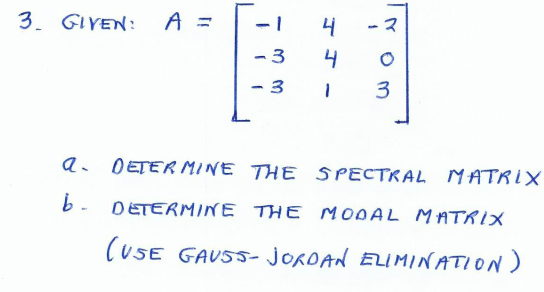 3. GIVEN: A = [ -1 4 -2
-3 4 0
-3 1 3 ]
a. DETERMINE THE SPECTRAL MATRIX
b. DETERMINE THE MODAL MATRIX
(USE GAUSS-JORDAN ELIMINATION)